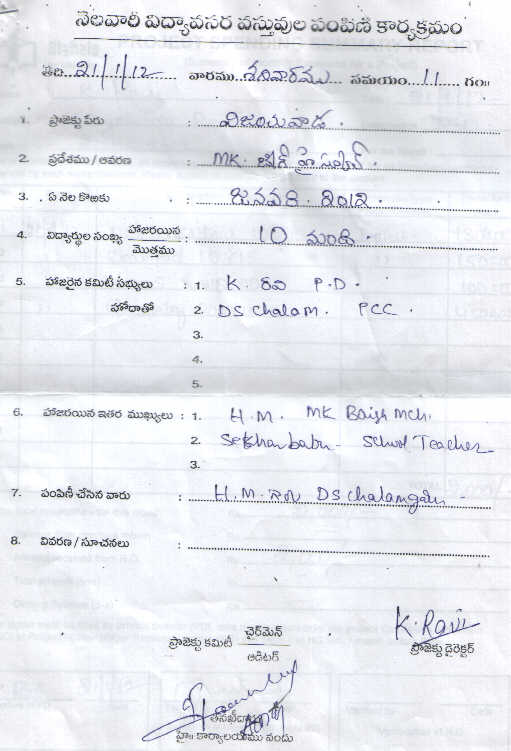 నెలవారీ విద్యావసర వస్తువుల పంపిణి కార్యక్రమం
తేది...21/1/12... వారము...శనివారము... సమయం...11...గం॥
1. ప్రాజెక్టు పేరు : విజయవాడ.
2. ప్రదేశము / ఆవరణ : MK. బేగ్ హై స్కూల్.
3. ఏ నెల కొఱకు : జనవరి. 2012.
4. విద్యార్థుల సంఖ్య హాజరయిన / మొత్తము : 10 మంది.
5. హాజరైన కమిటీ సభ్యులు : 1. K. రవి P.D.
హోదాతో 2. DS Chalam. PCC.
3.
4.
5.
6. హాజరయిన ఇతర ముఖ్యులు : 1. H.M. MK
2. Sekharbabu - School Teacher
3.
7. పంపిణీ చేసిన వారు : H.M. DS Chalamgaru
8. వివరణ / సూచనలు :
K. Ravi
ప్రాజెక్టు కమిటీ చైర్‌మెన్ / ఆడిటర్
ప్రాజెక్టు డైరెక్టర్
హై॥ కార్యాలయము నందు